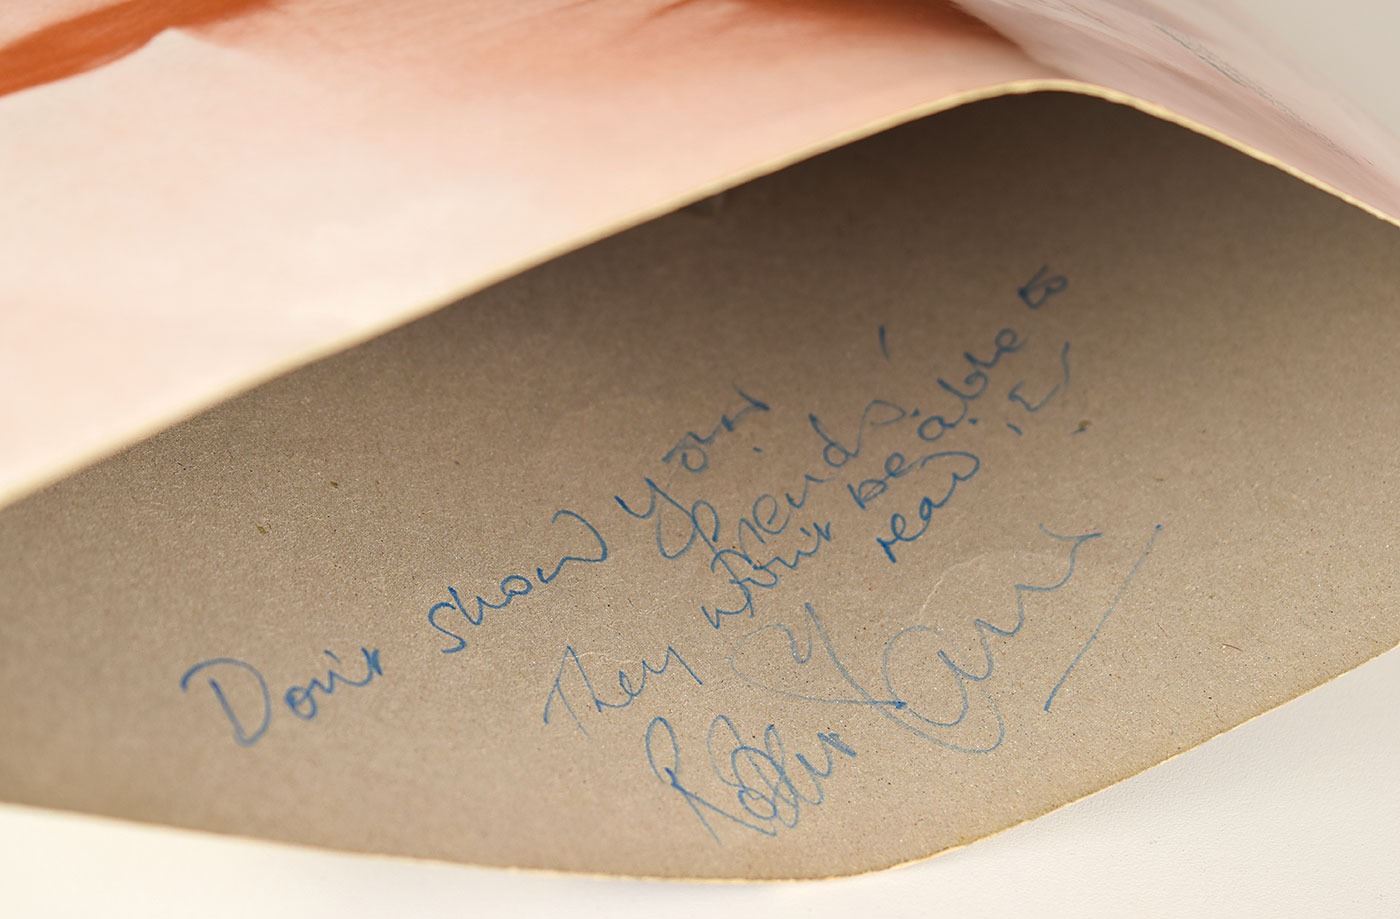 Don't show your
friends!
They won't be able to
read